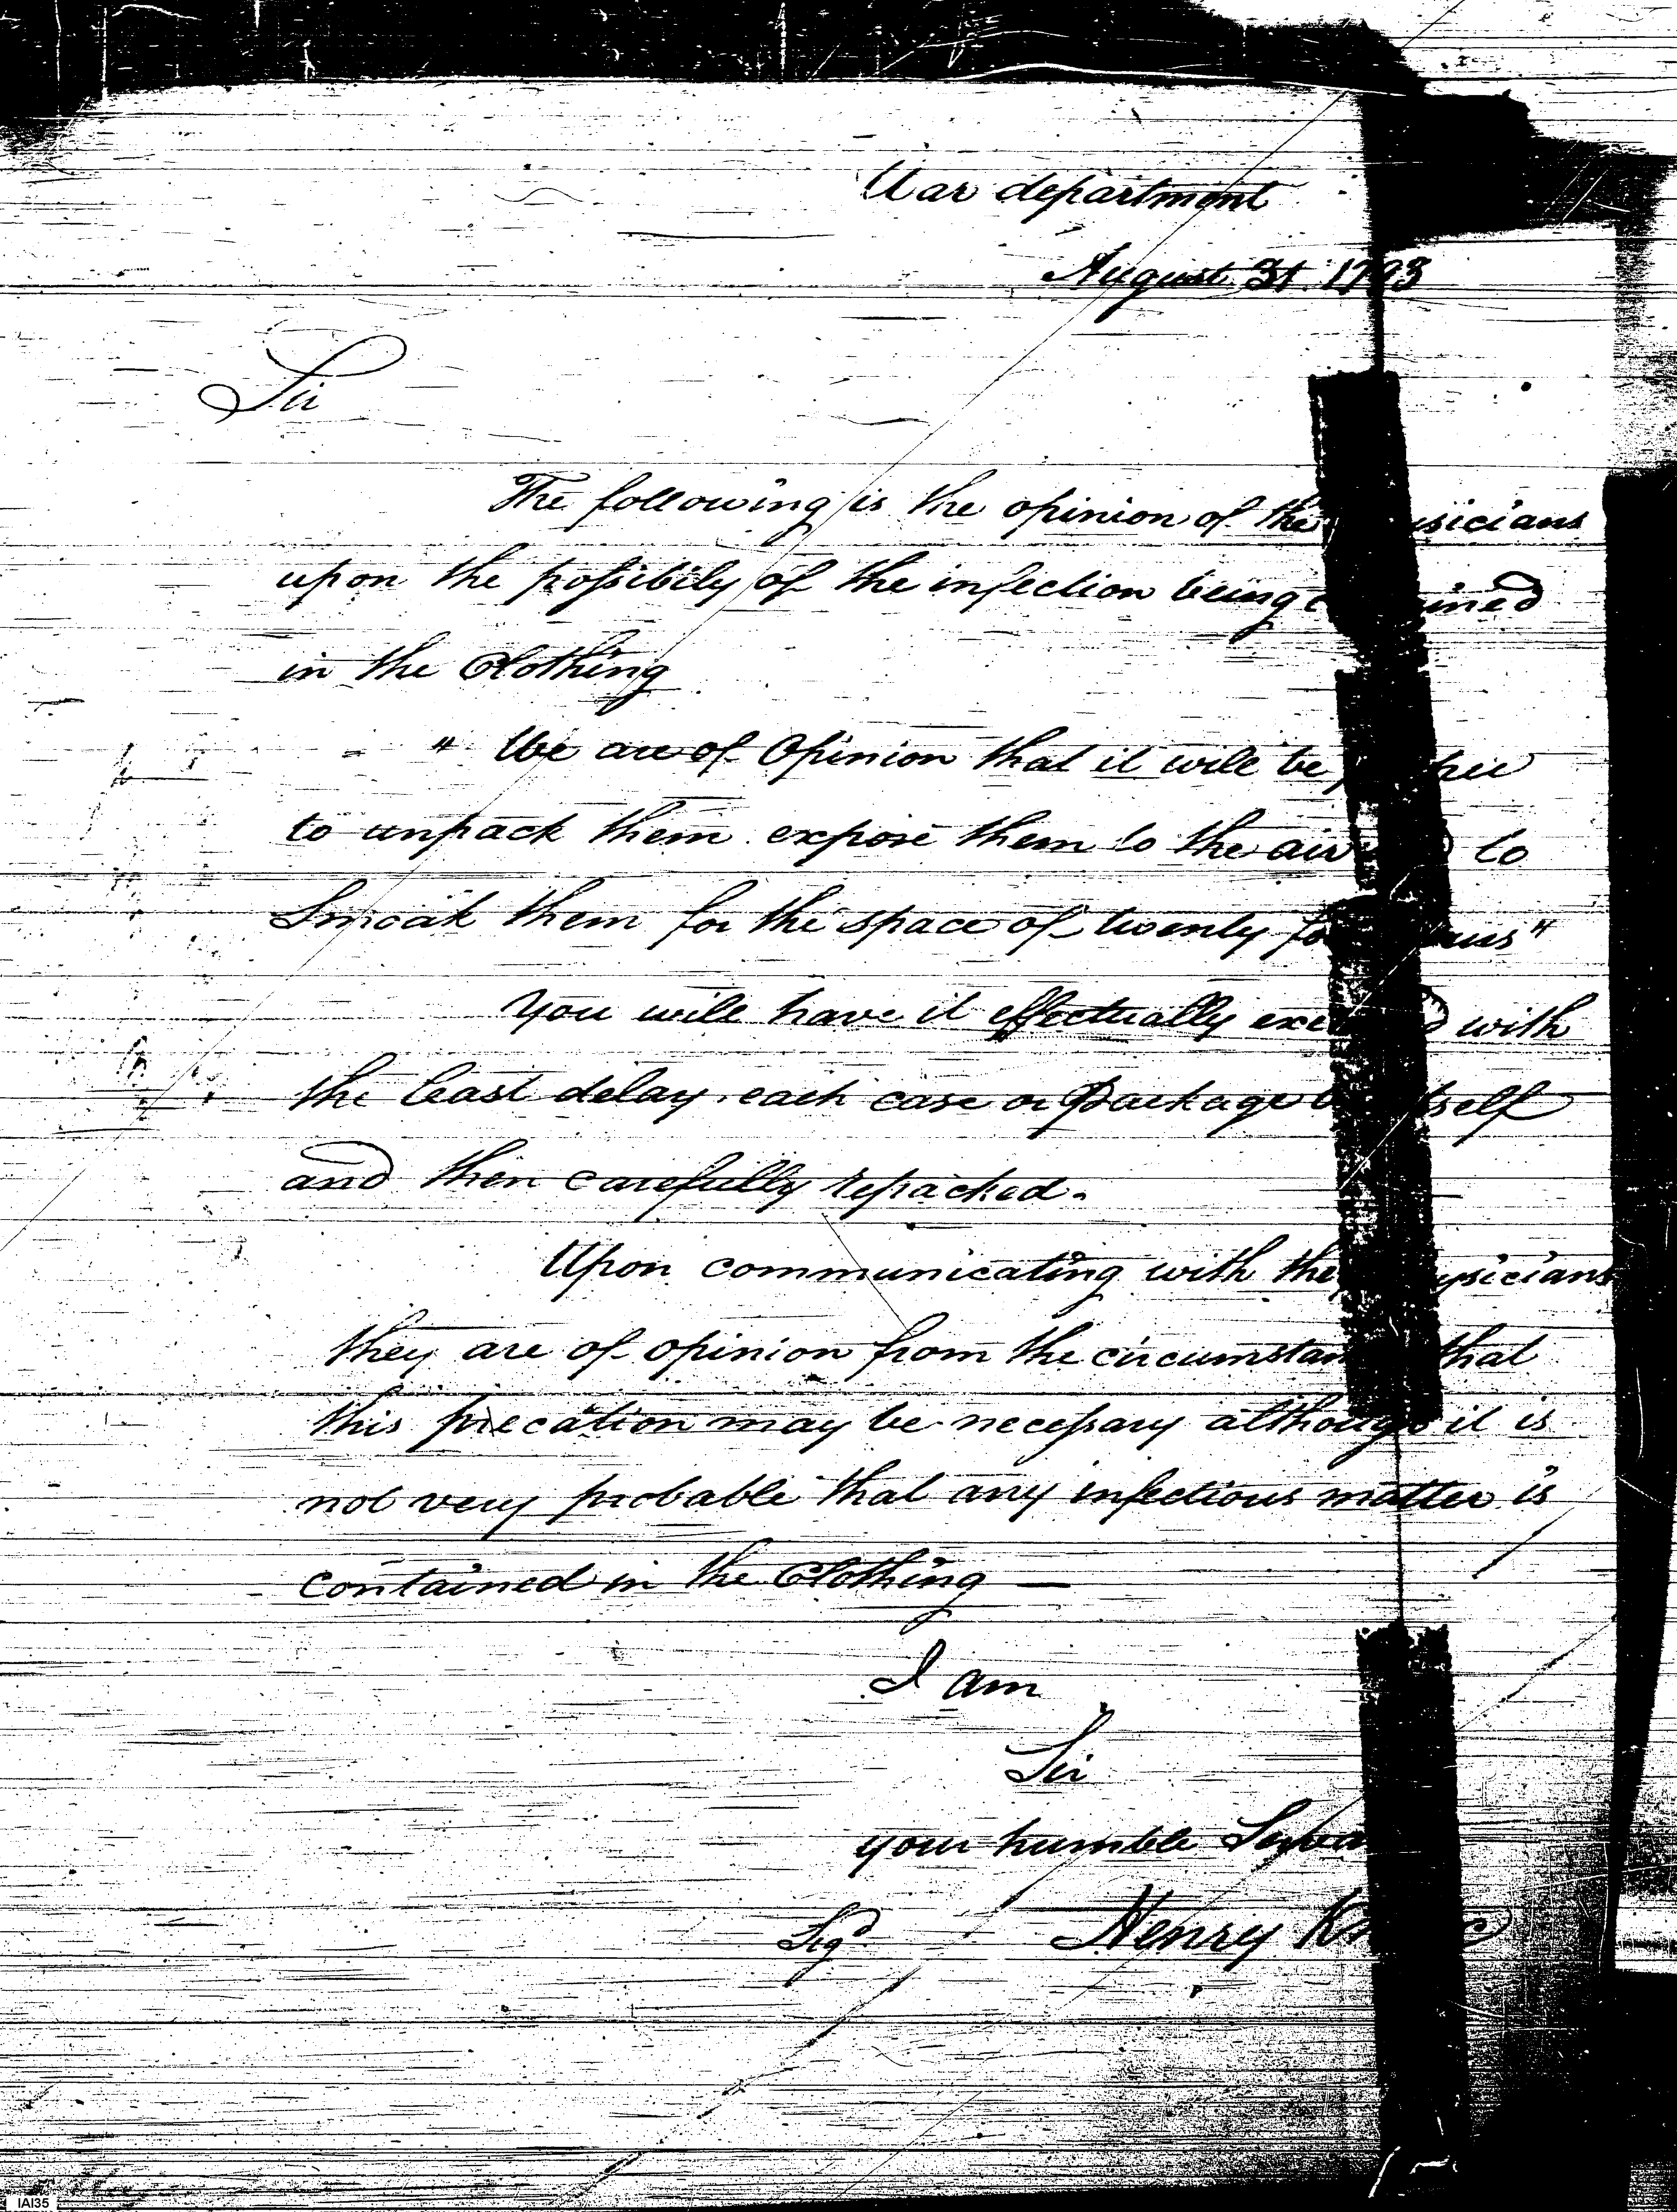 War department
August 31 1793
Sir
The following is the opinion of the physicians
upon the possibily of the infection being contained
in the Clothing
" We are of Opinion that it will be proper
to unpack them expose them to the air and to
Smoak them for the space of twenty four hours"
You will have it effectually executed with
the least delay. each case or package by itself
and then carefully repacked.
Upon communicating with the physicians
they are of opinion from the circumstances that
this precation may be necessary although it is
not very probable that any infectious matter is
contained in the Clothing —
I am
Sir
your humble Serva
Sigd Henry Knox
IAI35